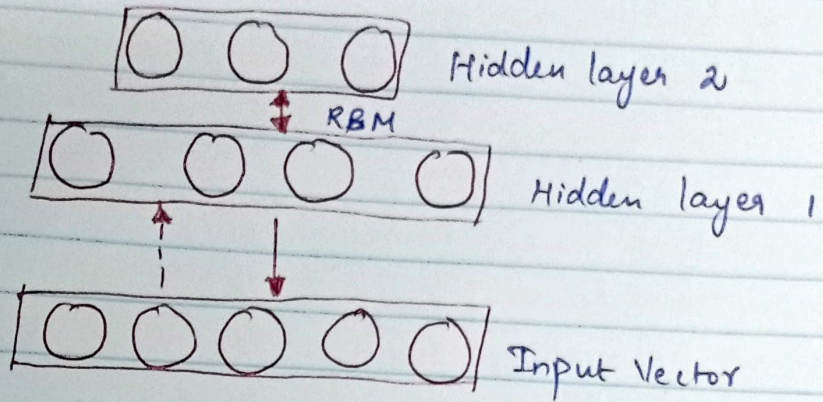 Hidden layer 2
RBM
Hidden layer 1
Input Vector